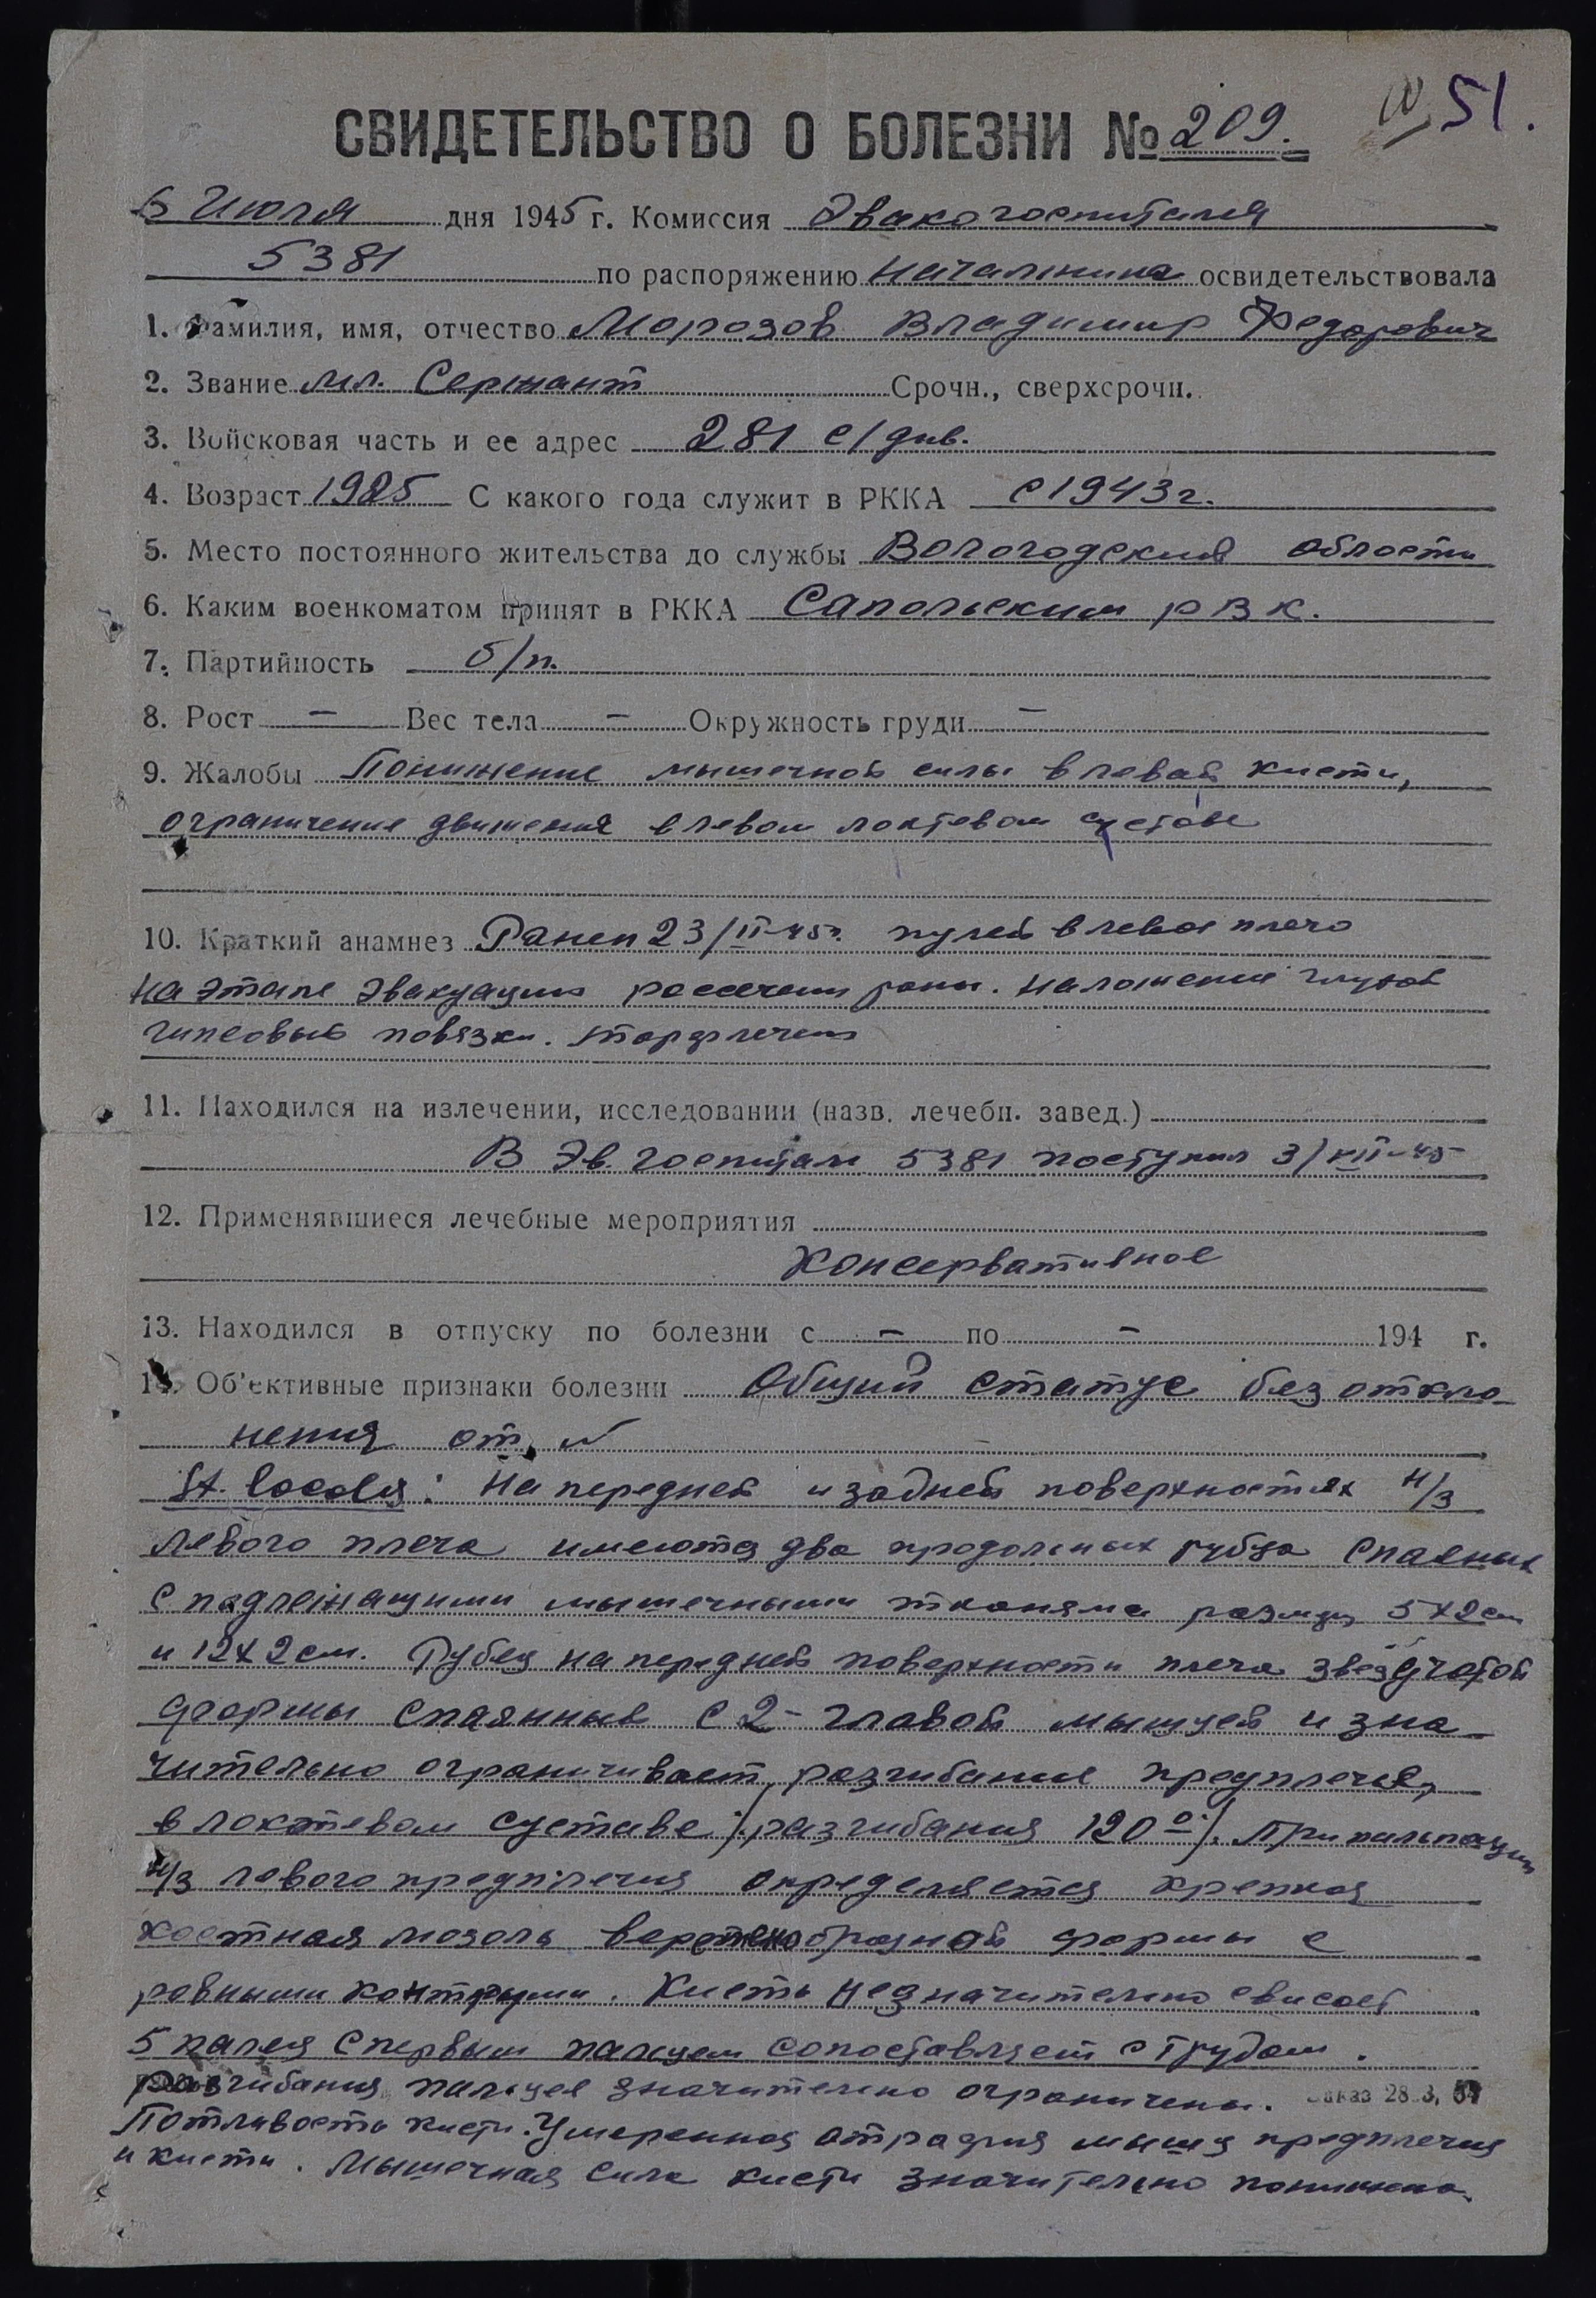 51.
СВИДЕТЕЛЬСТВО О БОЛЕЗНИ № 209.
6 Июля дня 1945 г. Комиссия Эвакогоспиталя
5381 по распоряжению Начальника освидетельствовала
1. Фамилия, имя, отчество Морозов Владимир Федорович
2. Звание мл. Сержант Срочн., сверхсрочн.
3. Войсковая часть и ее адрес 281 с/див.
4. Возраст 1925 С какого года служит в РККА с 1943 г.
5. Место постоянного жительства до службы Вологодский области
6. Каким военкоматом принят в РККА Сапольским РВК.
7. Партийность б/п.
8. Рост — Вес тела — Окружность груди —
9. Жалобы Понижение мышечной силы в левой кисти,
ограничение движения в левом локтевом суставе
10. Краткий анамнез Ранен 23/II-45г. пулей в левое плечо
На этапе эвакуации рассечен раны. Наложение глухой
гипсовый повязки.
11. Находился на излечении, исследовании (назв. лечебн. завед.)
В Эв. госпитам 5381 поступил 3/VII-45
12. Применявшиеся лечебные мероприятия
Консервативное
13. Находился в отпуску по болезни с — по — 194 г.
14. Об'ективные признаки болезни Общий статус без откло-
нения от N
St. localis: На передней и задней поверхностях н/3
левого плеча имеются два продольных рубца спаеных
с падлежащими мышечными тканями размер 5х2см
и 12х2см. Рубец на передней поверхности плеча звездчатой
формы спаянный с 2-главой мышцей и зна-
чительно ограничивает разгибание предплечья,
в локтевом суставе /разгибания 120°/. При пальпации
н/3 левого предплечия определяется крепкая
костная мозоль веретенобразной формы с
ровными контурами. Кисть незначительно свисает
5 палец с первым пальцем сопоставляет с трудом.
разгибания пальцев значительно ограничены. Заказ 28
Потливость кисти. Умеренная атрафия мышц предплечия
и кисти. Мышечная сила кисти значительно понижена.